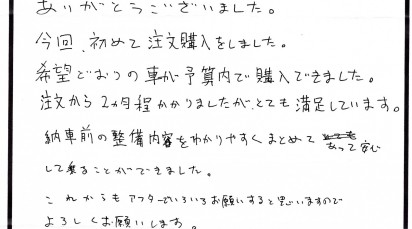 ありがとうございました。
今回、初めて注文購入をしました。
希望どおりの車が予算内で購入できました。
注文から2カ月程かかりましたが、とても満足しています。
納車前の整備内容をわかりやすくまとめて あって安心
して乗ることができました。
これからもアフターでいろいろお願いすると思いますので
よろしくお願いします。